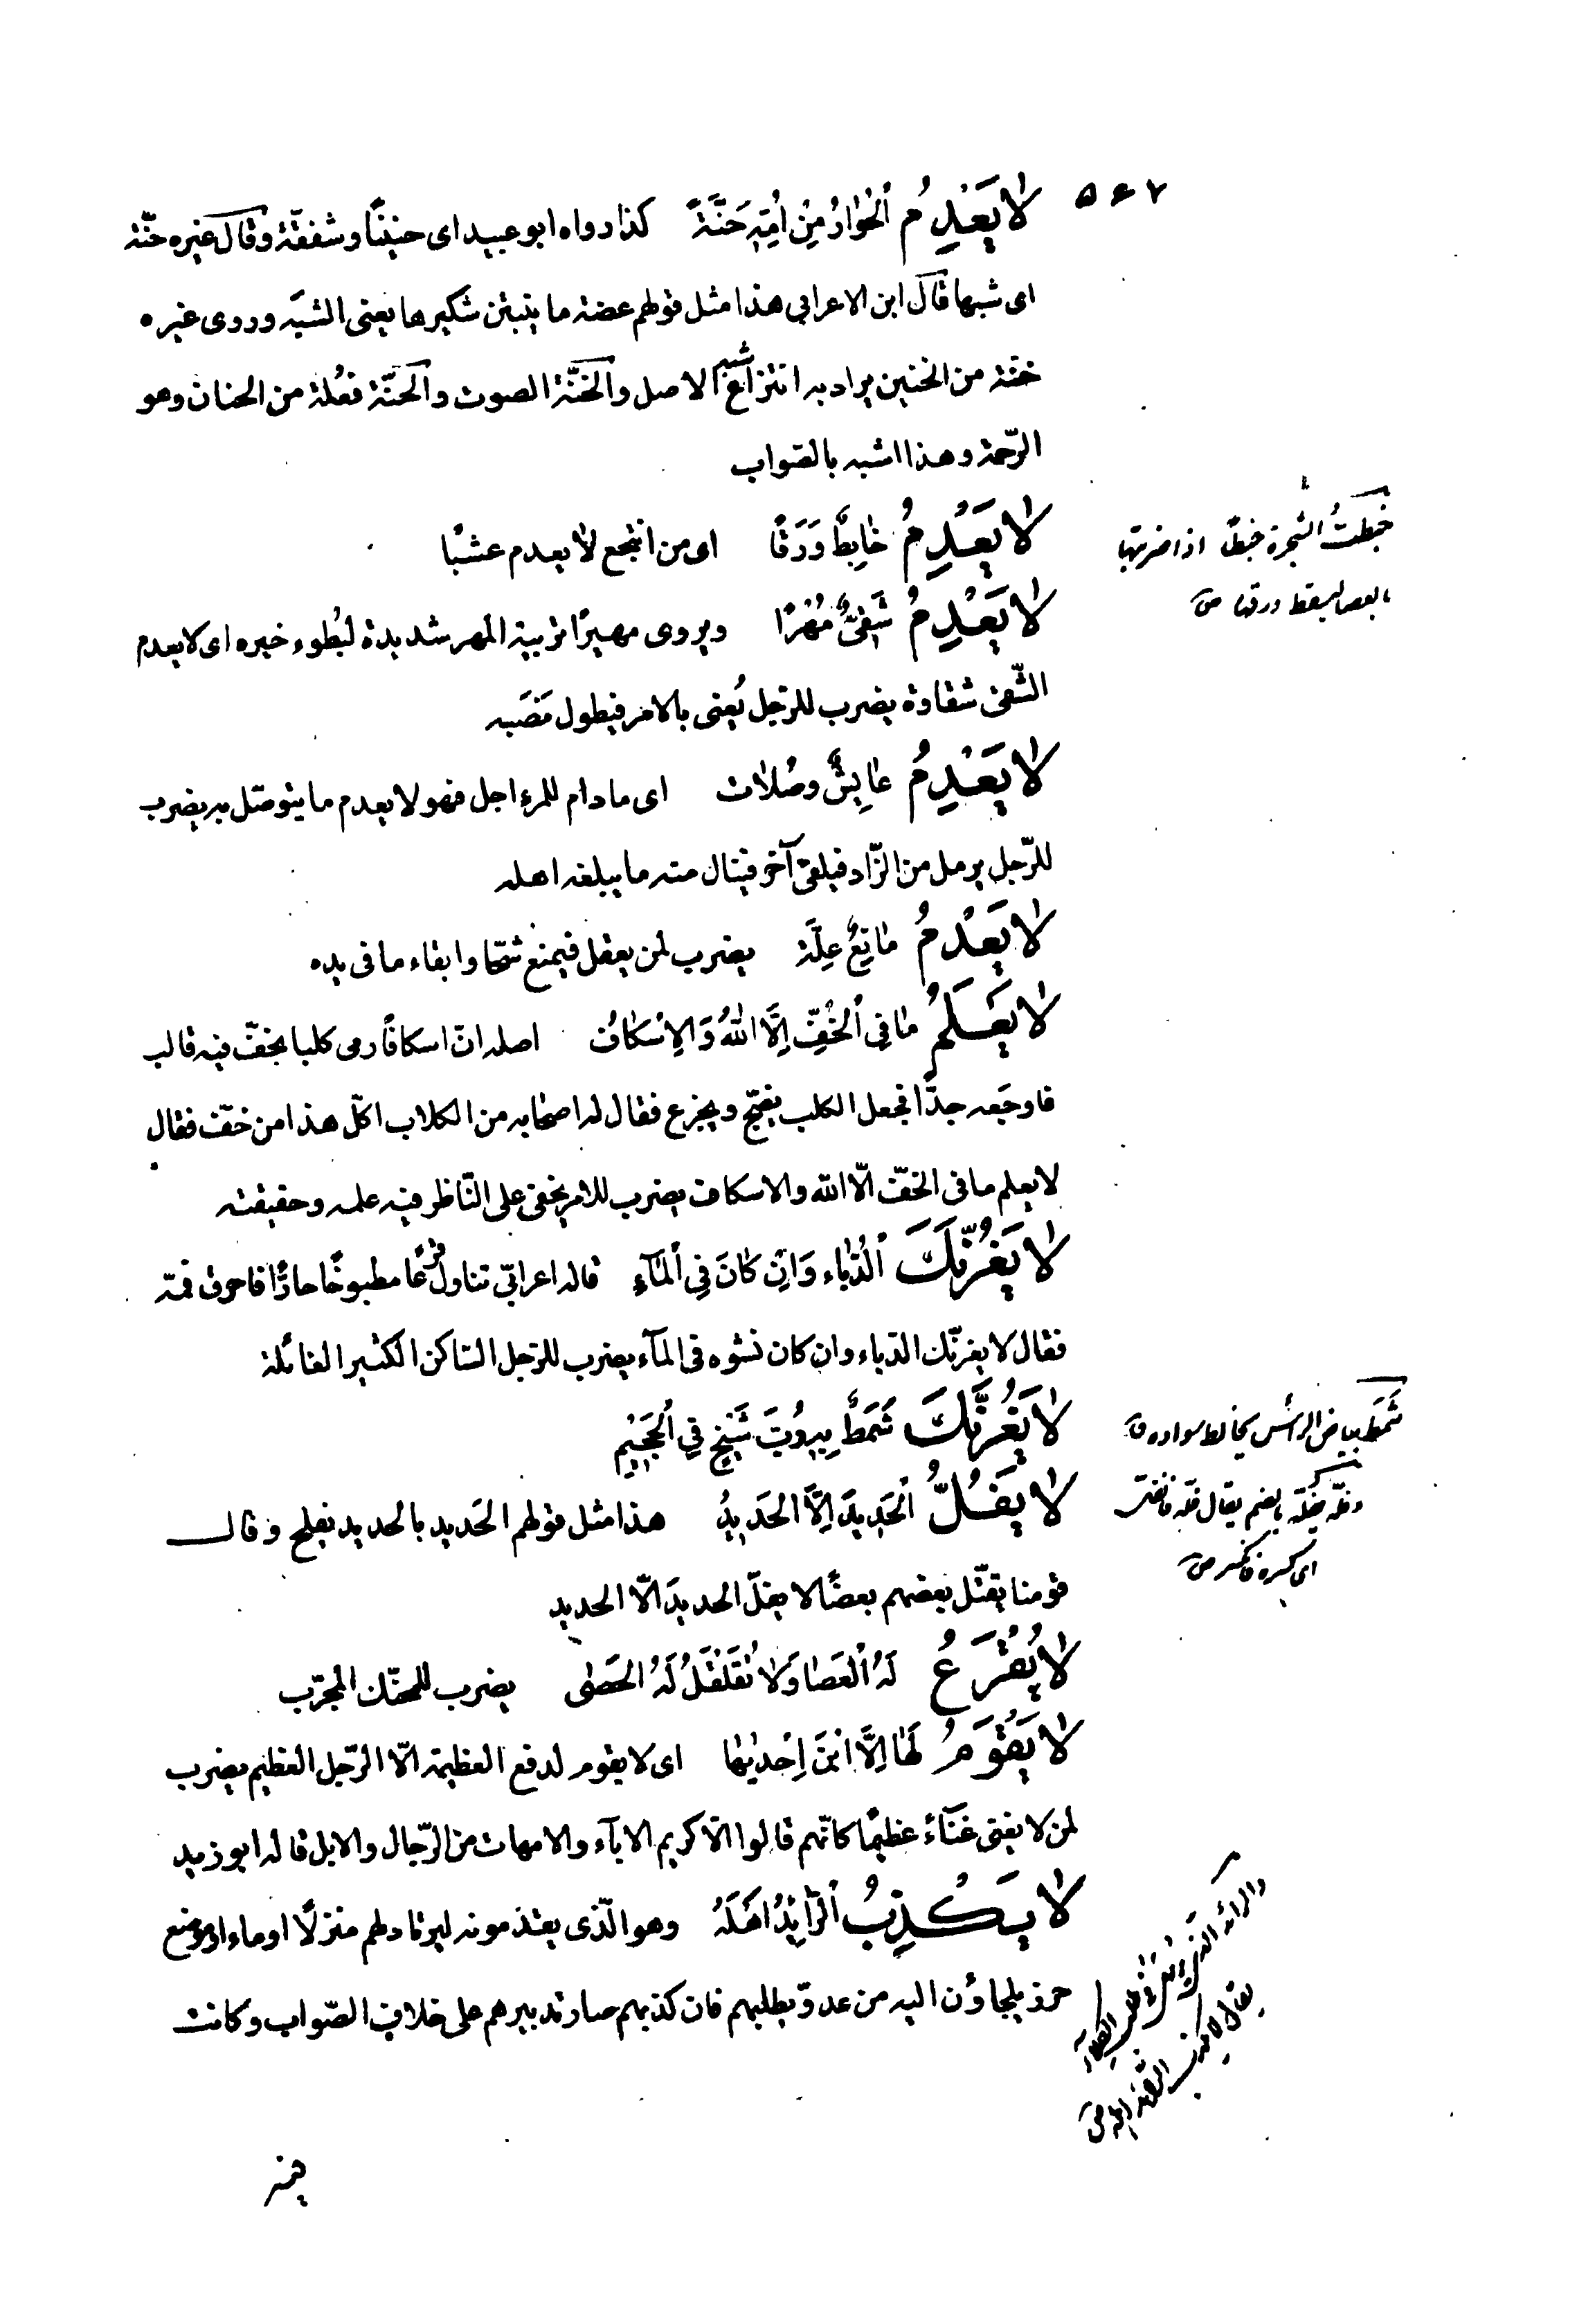 ۵۶۷
لا يَعْدِمُ الْحُوٰارُ مِنْ اُمِّهِ حَنَّةً كذا رواه ابو عبيد اى حنينًا وشفقّة وقال غيره حنّة
اى شبها قال ابن الاعرابي هذا مثل قولهم عضة ما ينبتن شكيرها يعنى الشبَه وروى غيره
خنّة من الخنين يراد به انتزاع شبه الاصل والخنّة الصوت والحنّة فعْلة من الحنان وهو
الرّحمة وهذا اشبه بالصّواب
لا يَعْدِمُ خٰابِطٌ وَرَقًا اى من انتجع لا يعدم عشبًا
خبطتُ الشجرة خبطًا اذا ضربتها
بالعصا ليسقط ورقها ص
لا يَعْدِمُ شَقِىٌّ مُهْرًا ويروى مهيرًا تربية المهر شديدة لبُطوء خيره اى لا يعدم
الشّقى شقاوة يضرب للرّجل يُعنى بالامر فيطول نَصَبه
لا يَعْدِمُ عٰايِشٌ وصُلاٰت اى ما دام للمرء اجل فهو لا يعدم ما يتوصّل به يضرب
للرّجل يرمل من الزّاد فيلقى آخر فينال منه ما يبلغه اهله
لا يَعْدِمُ مٰانِعٌ عِلَّةً يضرب لمن يعتل فيمنع شحّا وابقاء ما فى يده
لا يَعْلَمُ مٰا فِى الْخُفِّ اِلَّا اللّٰهُ وَ الْاِسْكٰافُ اصله انّ اسكافًا رمى كلبا بخفّ فيه قالب
فاوجَعه جدًّا فجعل الكلب يضجّ ويجزع فقال له اصحابه من الكلاب اكلّ هذا من خفّ فقال
لا يعلم ما فى الخفّ الّا الله والاسكاف يضرب للامر يخفى على النّاظر فيه علمه وحقيقته
لا يَغُرَّنَّكَ الدُّبّٰاء وَاِنْ كٰانَ فِى الْمٰآءِ قاله اعرابىّ تناول قرعًا مطبوخًا حارًّا فاحرق فمه
فقال لا يغرنّك الدّباء وان كان نشوه فى المآء يضرب للرّجل السّاكن الكثير الغائلة
لا يَغُرَّنَّكَ شَمَطٌ بِبرُوَيَّ شَيْخٍ فِى الْجَحِيْمِ
شَمَط بياض الرأس يخالط سواده ق
لا يَفُلُّ الْحَدِيدَ اِلَّا الْحَدِيدُ هذا مثل قولهم الحَديد بالحديد يفلح وقال
وفلّه يفُلّه بالضم يقال فلّه فانفلّ
اى كسره فانكسر ص
قومنا يقتّل بعضهم بعضًا لا يفلّ الحديدَ الّا الحديد
لا يُقْرَعُ لَهُ الْعَصٰا وَلاٰ تُقَلْقَلُ لَهُ الْحَصٰى يضرب للمحنّك المجرّب
لا يَقُوْمُ لَهٰا اِلَّا ابْنُ اِحْدٰيهٰا اى لا يقوم لدفع العظيمة الّا الرّجل العظيم يضرب
لمن لا يغنى غَنآءً عظيمًا كانّهم قالوا الّا كريم الابآء والامهات من الرّجال والابل قاله ابو زيد
لا يَكْذِبُ الرّٰايِدُ اَهْلَهُ وهو الّذى يقدّمونه ليرتاد لهم منزلًا او ماء او موضع
حرز يلجاؤن اليه من عدوّ يطلبهم فان كذبهم صار تدبيرهم على خلاف الصّواب وكانت
والرائد الذى يُرسَل فى طلب الكلاء
يقال لا يكذب الرائد اهله ص